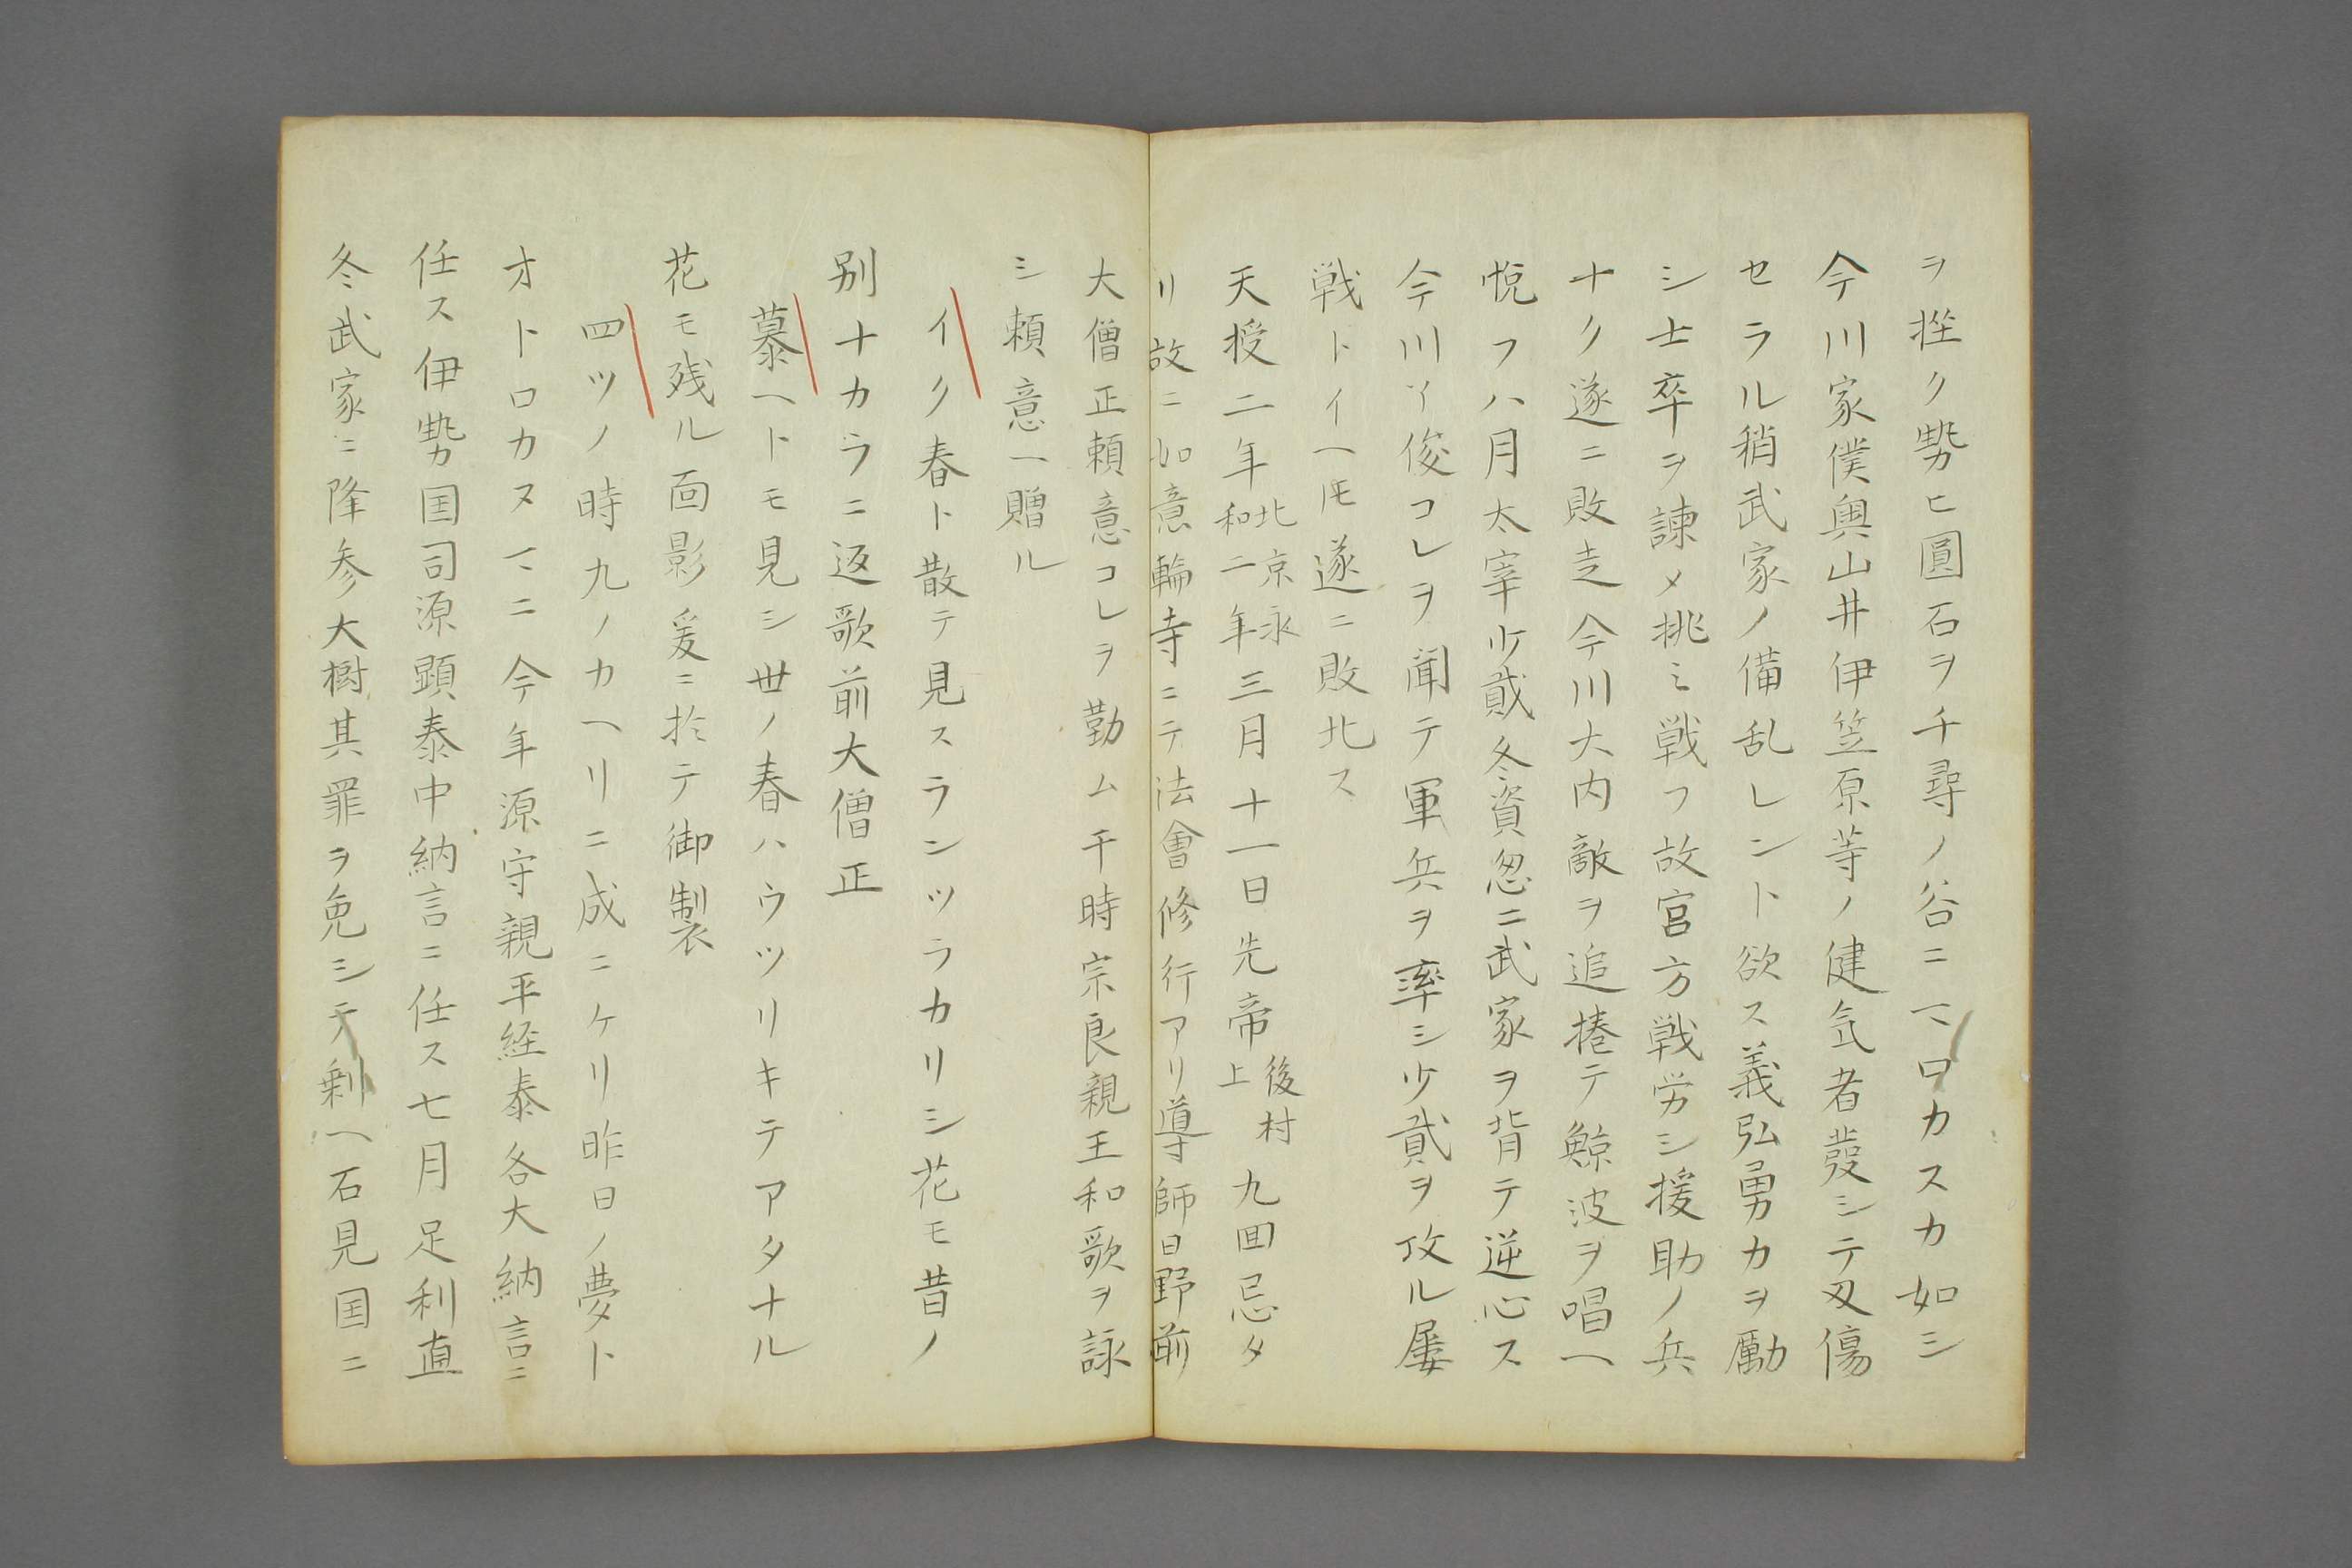 ヲ挫ク勢ヒ圓石ヲ千尋ノ谷ニマロカスカ如シ
今川家僕奥山井伊笠原等ノ健気者發シテ刄傷
セラル稍武家ノ備乱レント欲ス義弘勇カヲ勵
シ士卒ヲ諌メ挑ミ戦フ故宮方戦労シ援助ノ兵
ナク遂ニ敗走今川大内敵ヲ追捲テ鯨波ヲ唱ヘ
悦フ八月太宰少貳冬資忽ニ武家ヲ背テ逆心ス
今川了俊コレヲ聞テ軍兵ヲ率シ少貳ヲ攻ル屡
戦トイヘ𪜈遂ニ敗北ス
天授二年北京永和二年三月十一日先帝後村上九回忌タ
リ故ニ如意輪寺ニテ法會修行アリ導師日野前
大僧正頼意コレヲ勤ム于時宗良親王和歌ヲ詠
シ頼意ヘ贈ル
イク春ト散テ見スランツラカリシ花モ昔ノ
別ナカラニ返歌前大僧正
慕ヘトモ見シ世ノ春ハウツリキテアタナル
花モ残ル面影爰ニ於テ御製
四ツノ時九ノカヘリニ成ニケリ昨日ノ夢ト
オトロカヌマニ今年源守親平経泰各大納言ニ
任ス伊勢国司源顕泰中納言ニ任ス七月足利直
冬武家ニ降参大樹其罪ヲ免シテ剰ヘ石見国ニ